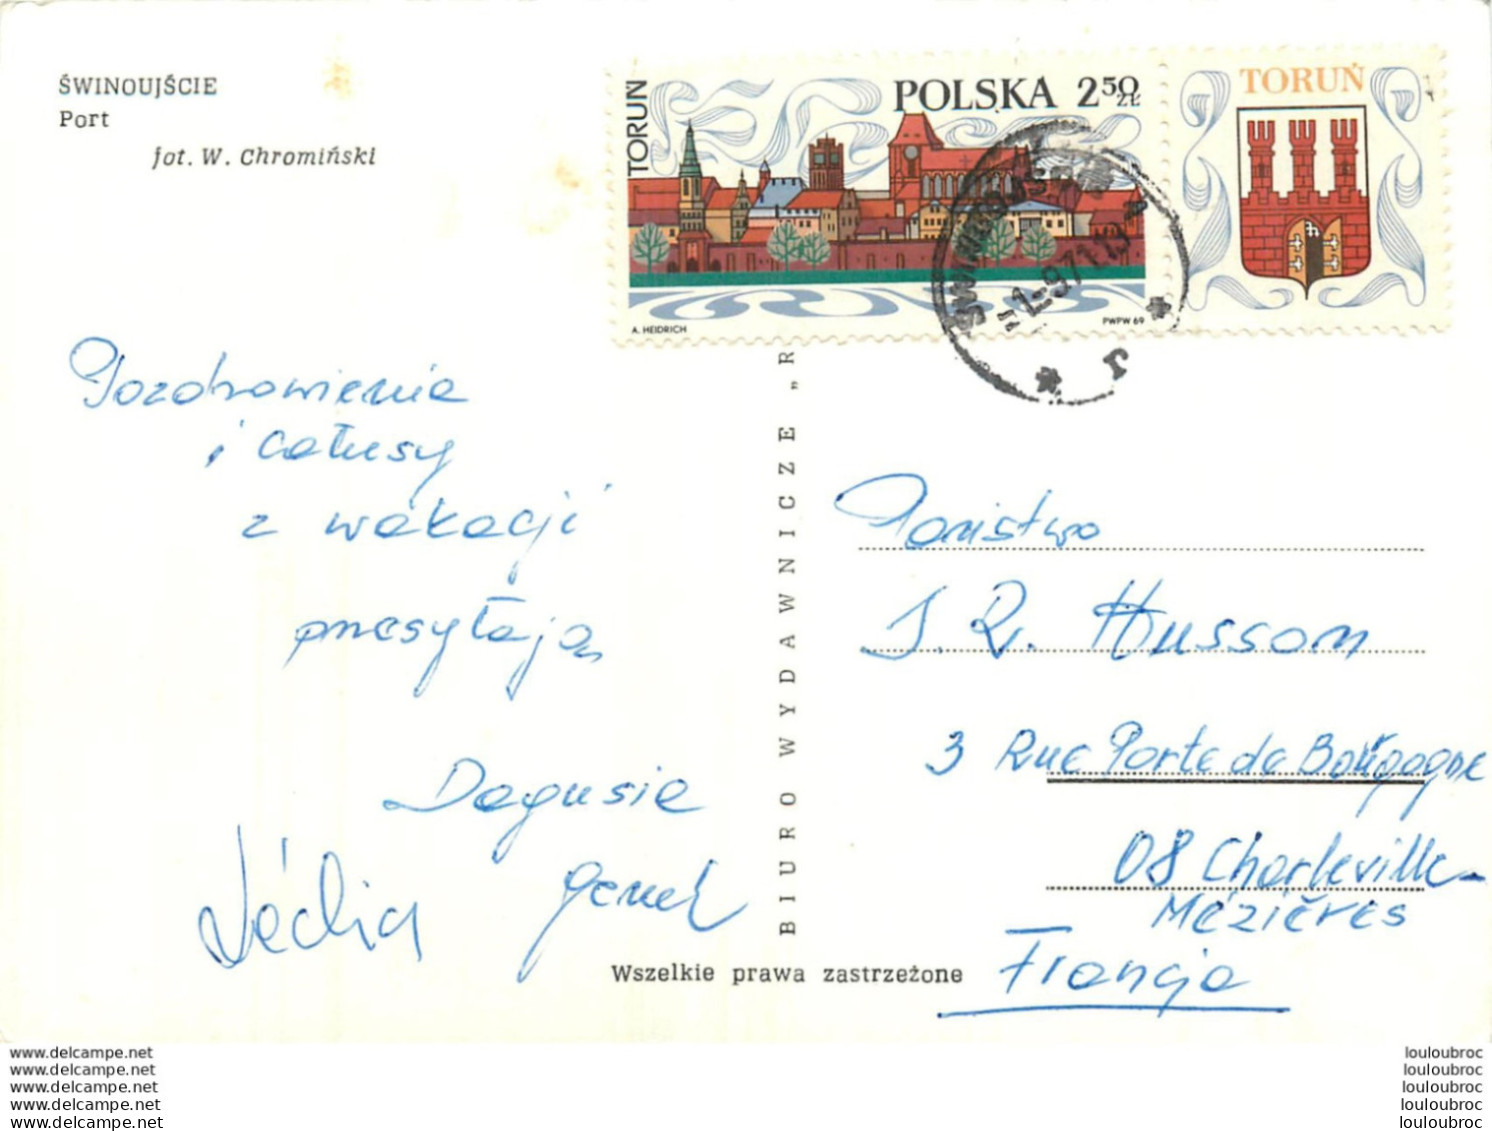 ŚWINOUJŚCIE
Port
fot. W. Chromiński
TORUŃ
POLSKA 2 50 ZŁ
A. HEIDRICH
PWPW 69
TORUŃ
Pozdrowienia
i całusy
z wakacji
przesyłają
Dagusia
Genek
BIURO WYDAWNICZE „R
Wszelkie prawa zastrzeżone
Państwo
J. R. Husson
3 Rue Porte de Bourgogne
08 Charleville-
Mézières
Francja
www.delcampe.net
www.delcampe.net
www.delcampe.net
www.delcampe.net
www.delcampe.net
louloubroc
louloubroc
louloubroc
louloubroc
louloubroc